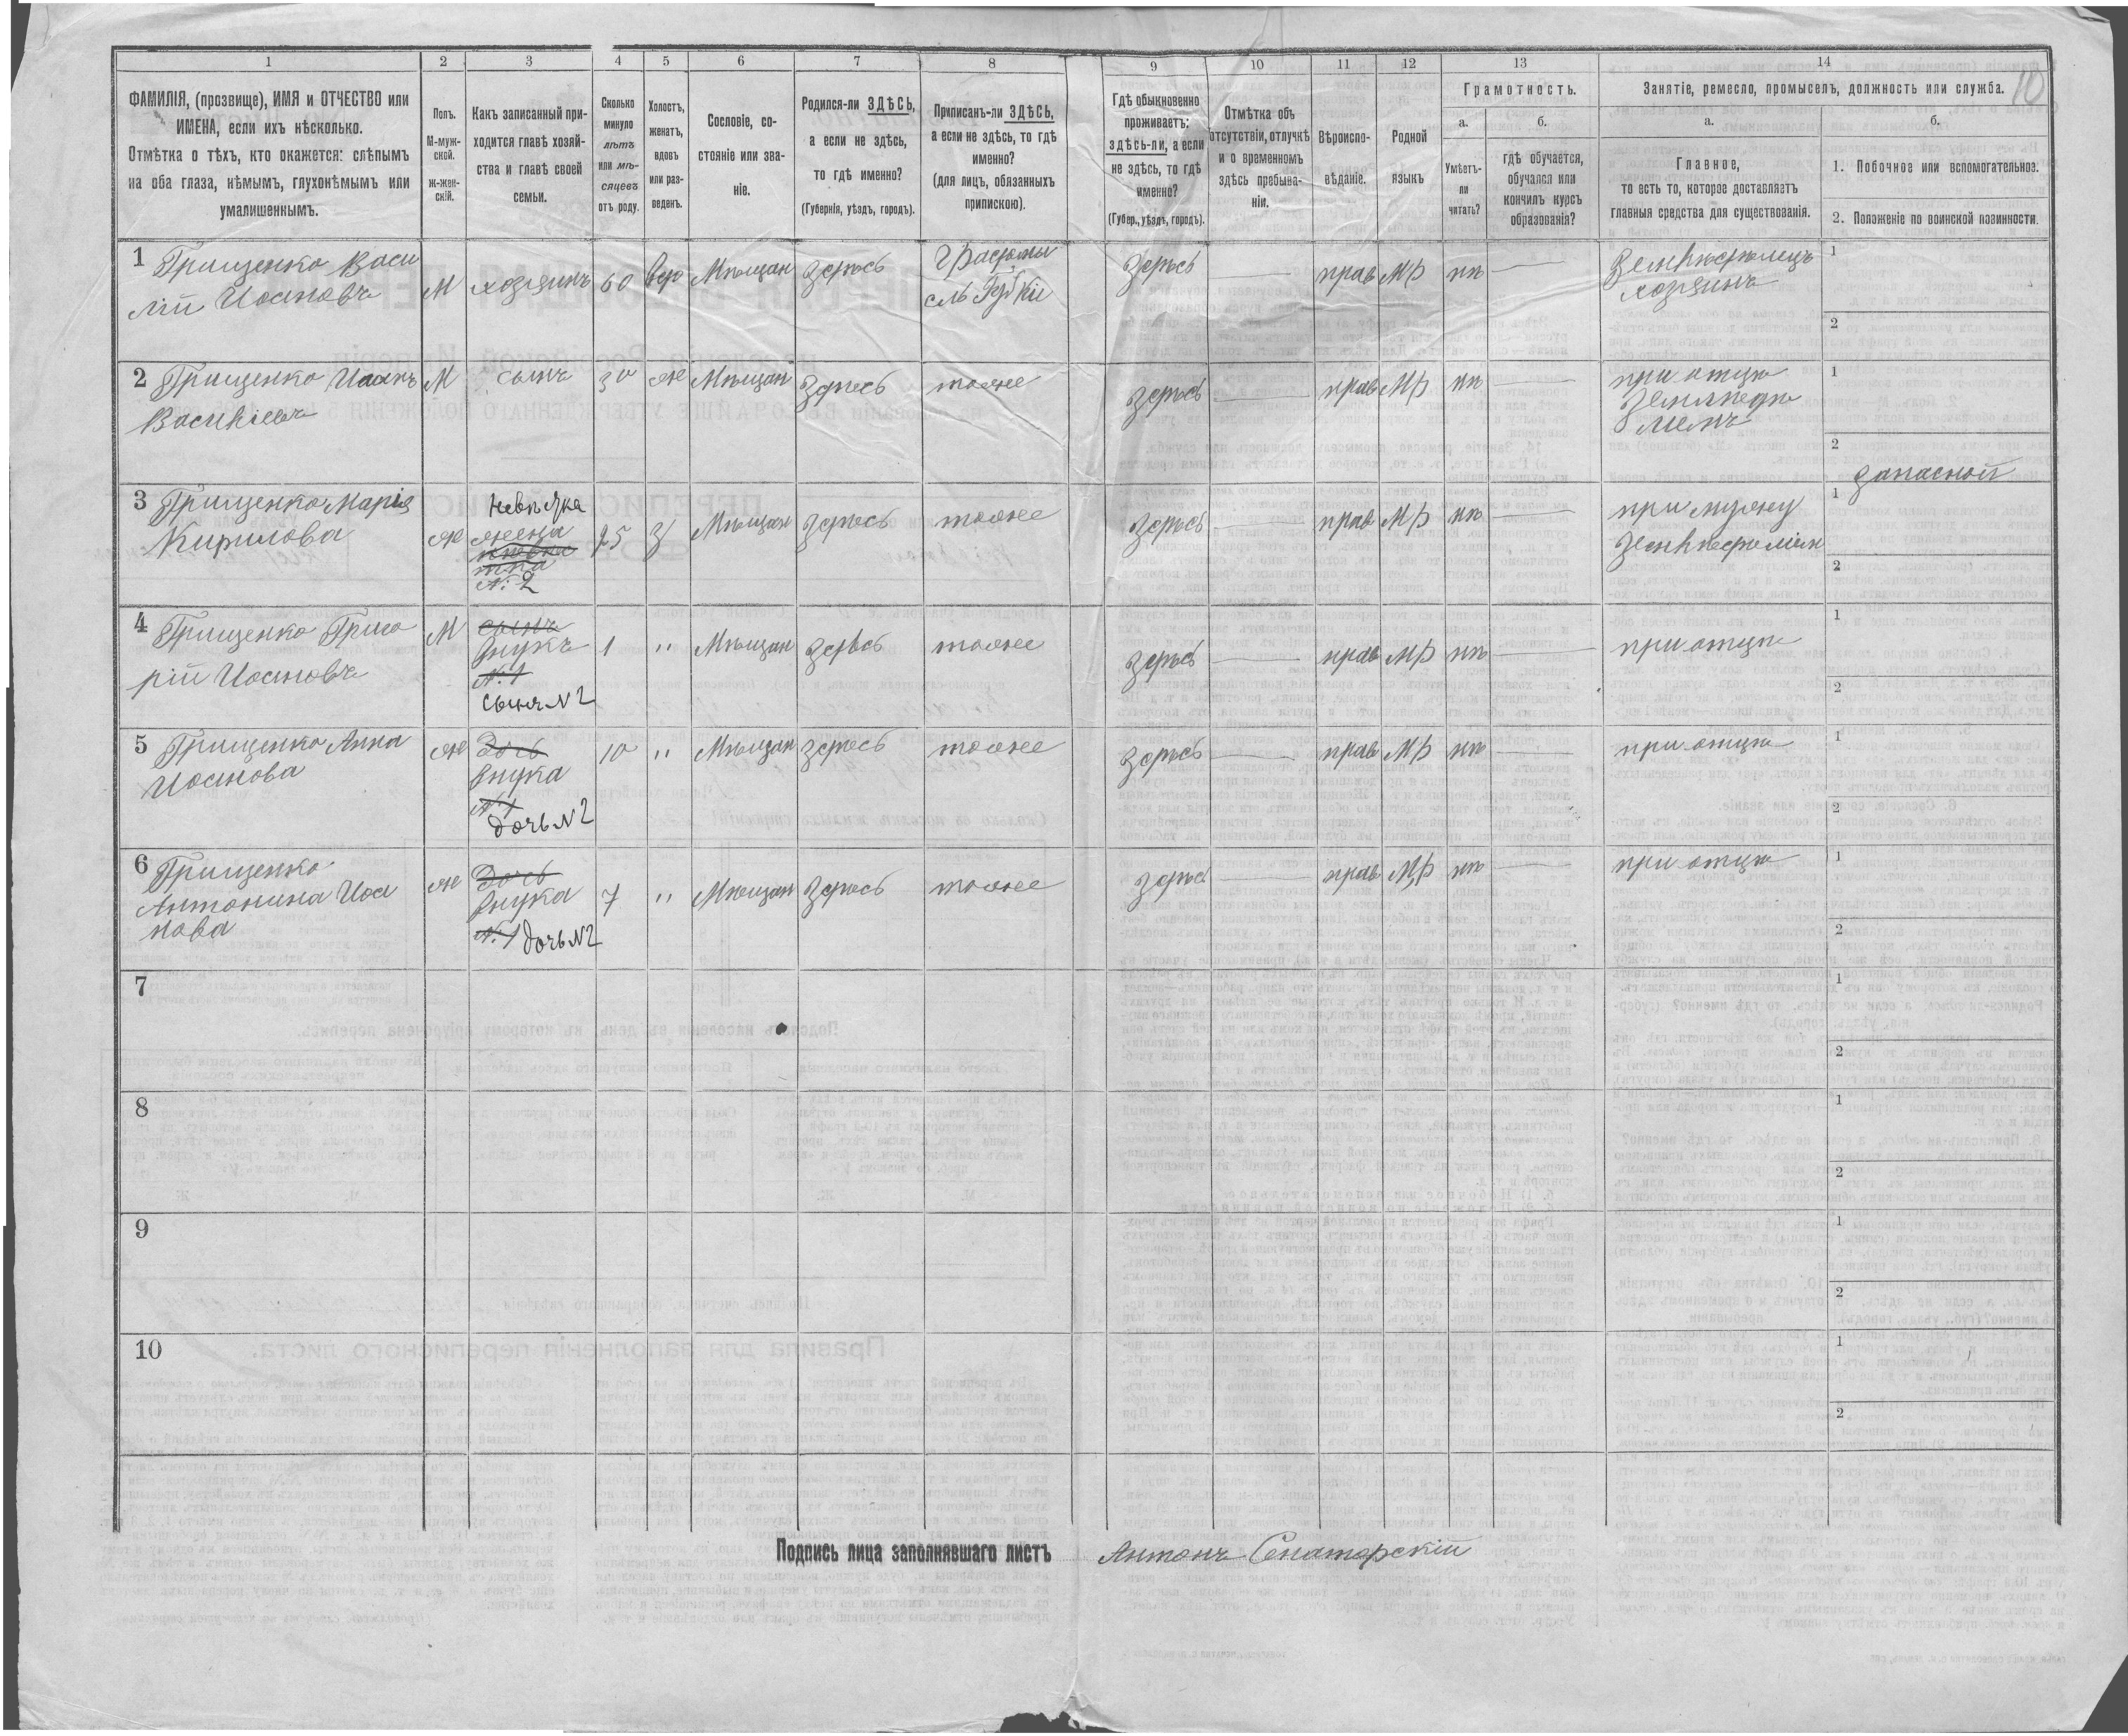 1 2 3 4 5 6 7 8 9 10 11 12 13 14
10
ФАМИЛІЯ, (прозвище), ИМЯ и ОТЧЕСТВО или
ИМЕНА, если ихъ нѣсколько.
Отмѣтка о тѣхъ, кто окажется: слѣпымъ
на оба глаза, нѣмымъ, глухонѣмымъ или
умалишеннымъ.
Полъ.
М-муж-
ской.
Ж-жен-
скій.
Какъ записанный при-
ходится главѣ хозяй-
ства и главѣ своей
семьи.
Сколько
минуло
лѣтъ
или мѣ-
сяцевъ
отъ роду.
Холостъ,
женатъ,
вдовъ
или раз-
веденъ.
Сословіе, со-
стояніе или зва-
ніе.
Родился-ли ЗДѢСЬ,
а если не здѣсь,
то гдѣ именно?
(Губернія, уѣздъ, городъ).
Приписанъ-ли ЗДѢСЬ,
а если не здѣсь, то гдѣ
именно?
(для лицъ, обязанныхъ
припискою).
Гдѣ обыкновенно
проживаетъ:
здѣсь-ли, а если
не здѣсь, то гдѣ
именно?
(Губер., уѣздъ, городъ).
Отмѣтка объ
отсутствіи, отлучкѣ
и о временномъ
здѣсь пребыва-
ніи.
Вѣроиспо-
вѣданіе.
Родной
языкъ
Грамотность.
а.
Умѣетъ-
ли
читать?
б.
гдѣ обучается,
обучался или
кончилъ курсъ
образованія?
Занятіе, ремесло, промыселъ, должность или служба.
а.
Главное,
то есть то, которое доставляетъ
главныя средства для существованія.
б.
1. Побочное или вспомогательное.
2. Положеніе по воинской повинности.
1 Грищенко Васи
лій Іоановъ
М
хозяинъ
60
вд
Мѣщан
здѣсь
здѣсь
прав
МР
нѣ
Земледѣлецъ
хозяинъ
1
2
2 Грищенко Іоанъ
Василіевъ
М
сынъ
30
ж
Мѣщан
здѣсь
тоже
здѣсь
прав
МР
нѣ
при отцѣ
1
2
запасной
3 Грищенко Марія
Кирилова
ж
невѣстка
жена
№ 2
25
З
Мѣщан
здѣсь
тоже
здѣсь
прав
МР
нѣ
при мужу
1
2
4 Грищенко Григо
рій Іоановъ
М
сынъ
Внукъ
№ 1
сынъ №2
1
"
Мѣщан
здѣсь
тоже
здѣсь
прав
МР
нѣ
при отцѣ
1
2
5 Грищенко Анна
Іоанова
ж
Дочь
Внука
№ 1
дочь №2
10
"
Мѣщан
здѣсь
тоже
здѣсь
прав
МР
нѣ
при отцѣ
1
2
6 Грищенко
Антонина Іоа
нова
ж
Дочь
Внука
№ 1 дочь №2
7
"
Мѣщан
здѣсь
тоже
здѣсь
прав
МР
нѣ
при отцѣ
1
2
7
1
2
8
1
2
9
1
2
10
1
2
Подпись лица заполнявшаго листъ Антонъ Сенаторскій